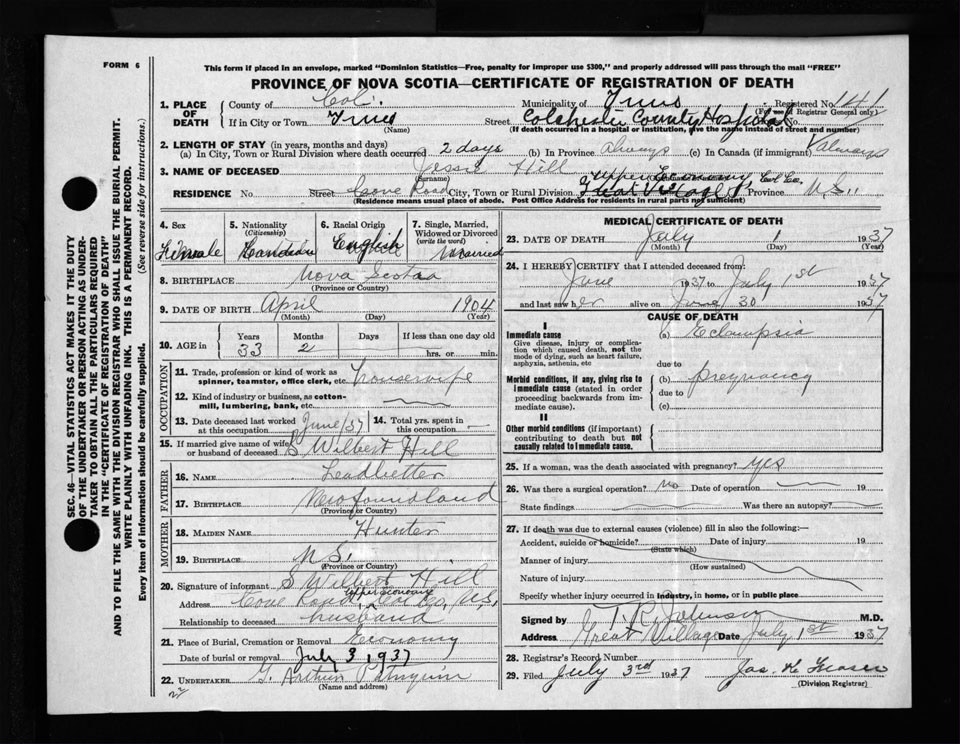 FORM 6
This form if placed in an envelope, marked "Dominion Statistics—Free, penalty for improper use $300," and properly addressed will pass through the mail "FREE"
PROVINCE OF NOVA SCOTIA—CERTIFICATE OF REGISTRATION OF DEATH
SEC. 46—VITAL STATISTICS ACT MAKES IT THE DUTY
OF THE UNDERTAKER OR PERSON ACTING AS UNDER-
TAKER TO OBTAIN ALL THE PARTICULARS REQUIRED
IN THE "CERTIFICATE OF REGISTRATION OF DEATH"
AND TO FILE THE SAME WITH THE DIVISION REGISTRAR WHO SHALL ISSUE THE BURIAL PERMIT.
WRITE PLAINLY WITH UNFADING INK. THIS IS A PERMANENT RECORD.
Every item of information should be carefully supplied. (See reverse side for instructions.)
1. PLACE OF DEATH
County of Col. Municipality of Truro Registered No. 141
(For use of Registrar General only)
If in City or Town Truro Street Colchester County Hospital No.
(Name) (If death occurred in a hospital or institution, give the name instead of street and number)
2. LENGTH OF STAY (in years, months and days)
(a) In City, Town or Rural Division where death occurred 2 days (b) In Province Always (c) In Canada (if immigrant) Always
3. NAME OF DECEASED Jessie Hill
(Surname)
Upper Economy Col. Co.
RESIDENCE No. Street Cove Road City, Town or Rural Division Great Village Province N.S.
(Residence means usual place of abode. Post Office Address for residents in rural parts not sufficient)
4. Sex Female
5. Nationality (Citizenship) Canadian
6. Racial Origin English
7. Single, Married, Widowed or Divorced (write the word) Married
8. BIRTHPLACE Nova Scotia
(Province or Country)
9. DATE OF BIRTH April 1904
(Month) (Day) (Year)
10. AGE in Years Months Days If less than one day old
33 2 hrs. or min.
OCCUPATION
11. Trade, profession or kind of work as spinner, teamster, office clerk, etc. housewife
12. Kind of industry or business, as cotton-mill, lumbering, bank, etc.
13. Date deceased last worked at this occupation June/37
14. Total yrs. spent in this occupation —
15. If married give name of wife or husband of deceased S Wilbert Hill
FATHER
16. NAME Leadbetter
17. BIRTHPLACE Newfoundland
(Province or Country)
MOTHER
18. MAIDEN NAME Hunter
19. BIRTHPLACE N.S.
(Province or Country)
20. Signature of informant S Wilbert Hill
Upper Economy
Address Cove Road, Col Co, N.S,
Relationship to deceased husband
21. Place of Burial, Cremation or Removal Economy
Date of burial or removal July 3 1937
22. UNDERTAKER G. Arthur
(Name and address)
MEDICAL CERTIFICATE OF DEATH
23. DATE OF DEATH July 1 1937
(Month) (Day) (Year)
24. I HEREBY CERTIFY that I attended deceased from:
June 1937 to July 1st 1937
and last saw her alive on June 30 1937
CAUSE OF DEATH
I
Immediate cause
Give disease, injury or complication which caused death, not the mode of dying, such as heart failure, asphyxia, asthenia, etc
(a) Eclampsia
due to
Morbid conditions, if any, giving rise to immediate cause (stated in order proceeding backwards from immediate cause).
(b) pregnancy
due to
(c)
II
Other morbid conditions (if important) contributing to death but not causally related to immediate cause.
25. If a woman, was the death associated with pregnancy? yes
26. Was there a surgical operation? no Date of operation 19
State findings Was there an autopsy?
27. If death was due to external causes (violence) fill in also the following:—
Accident, suicide or homicide? Date of injury 19
(State which)
Manner of injury
(How sustained)
Nature of injury
Specify whether injury occurred in industry, in home, or in public place
Signed by T. R. Johnson M.D.
Address Great Village Date July 1st 1937
28. Registrar's Record Number
29. Filed July 3rd 1937 Jas. H. Fraser
(Division Registrar)